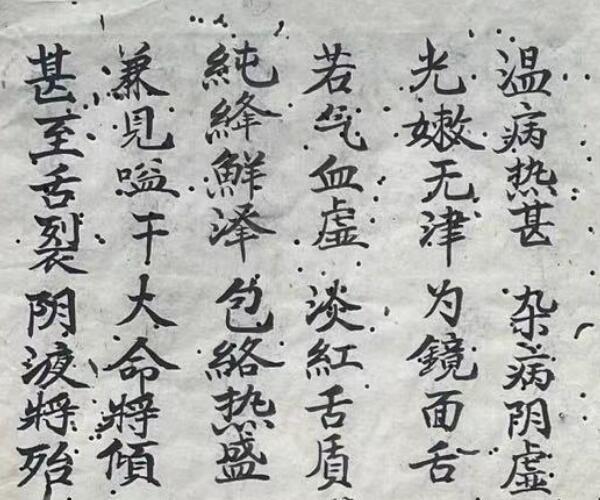 温病热甚 杂病阴虚
光嫩无津 为鏡面舌
若气血虚 淡紅舌质
純絳鮮泽 包絡热盛
兼見嗌干 大命將傾
甚至舌裂 阴液將殆